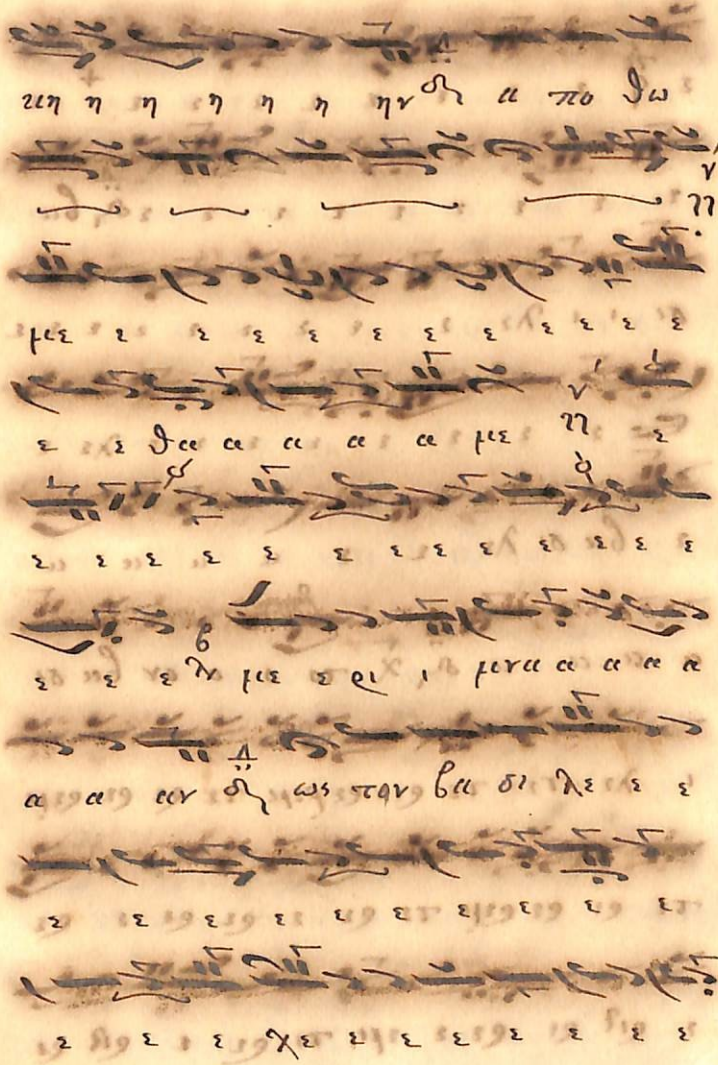 κη η η η η η ην α πο θω
με ε ε ε ε ε ε ε ε ε ε ε
ε ε θα α α α α με ε
ε ε ε ε ε ε ε ε ε ε ε ε ε
ε ε ε με ε ρι ι μνα α α α α
α α αν ως τον βα σι λε ε ε
ε ε ε ε ε ε ε ε ε ε
ε ε ε χε ε ε ε ε ε ε ε